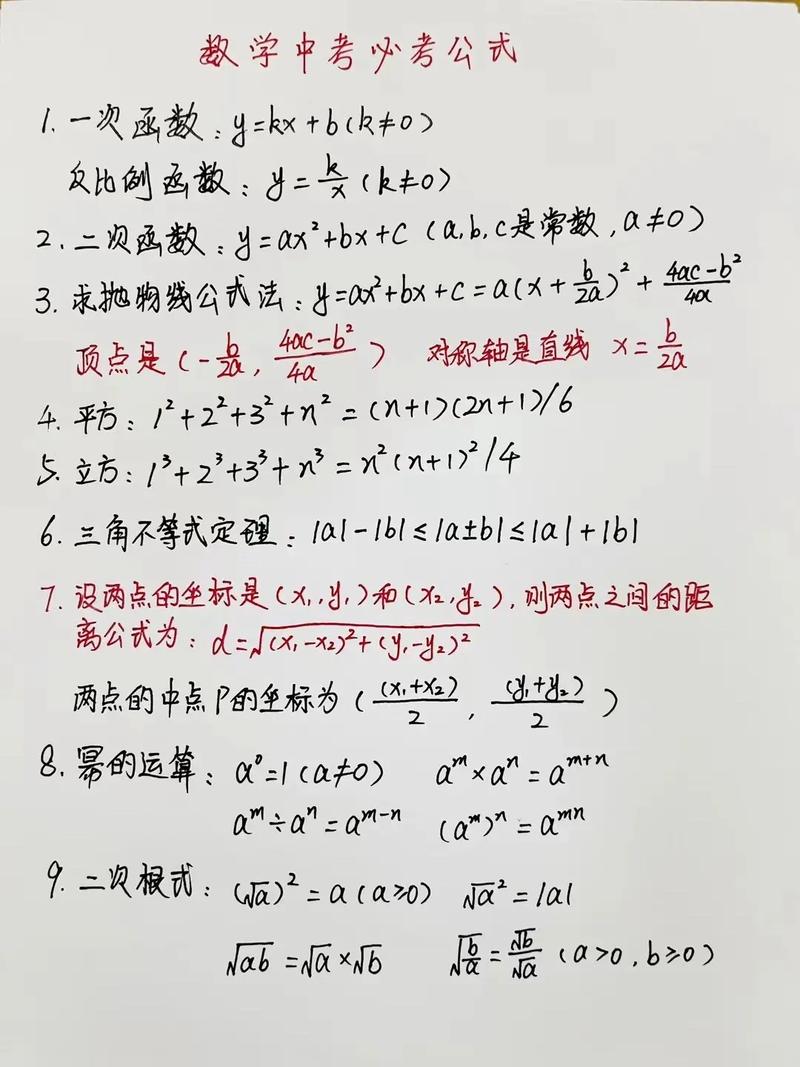 数学中考必考公式
1. 一次函数：y=kx+b(k≠0)
反比例函数：y=k/x(k≠0)
2. 二次函数：y=ax²+bx+c（a,b,c是常数,a≠0）
3. 求抛物线公式法：y=ax²+bx+c=a(x+b/2a)²+(4ac-b²)/4a
顶点是(-b/2a,(4ac-b²)/4a) 对称轴是直线 x=b/2a
4. 平方：1²+2²+3²+n²=(n+1)(2n+1)/6
5. 立方：1³+2³+3³+n³=n²(n+1)²/4
6. 三角不等式定理：|a|-|b|≤|a±b|≤|a|+|b|
7. 设两点的坐标是(x₁,y₁)和(x₂,y₂),则两点之间的距
离公式为：d=√((x₁-x₂)²+(y₁-y₂)²)
两点的中点P的坐标为((x₁+x₂)/2,(y₁+y₂)/2)
8. 幂的运算：a⁰=1(a≠0) aᵐ×aⁿ=aᵐ⁺ⁿ
aᵐ÷aⁿ=aᵐ⁻ⁿ (aᵐ)ⁿ=aᵐⁿ
9. 二次根式：(√a)²=a(a≥0) √a²=|a|
√ab=√a×√b √(b/a)=√b/√a(a>0,b≥0)